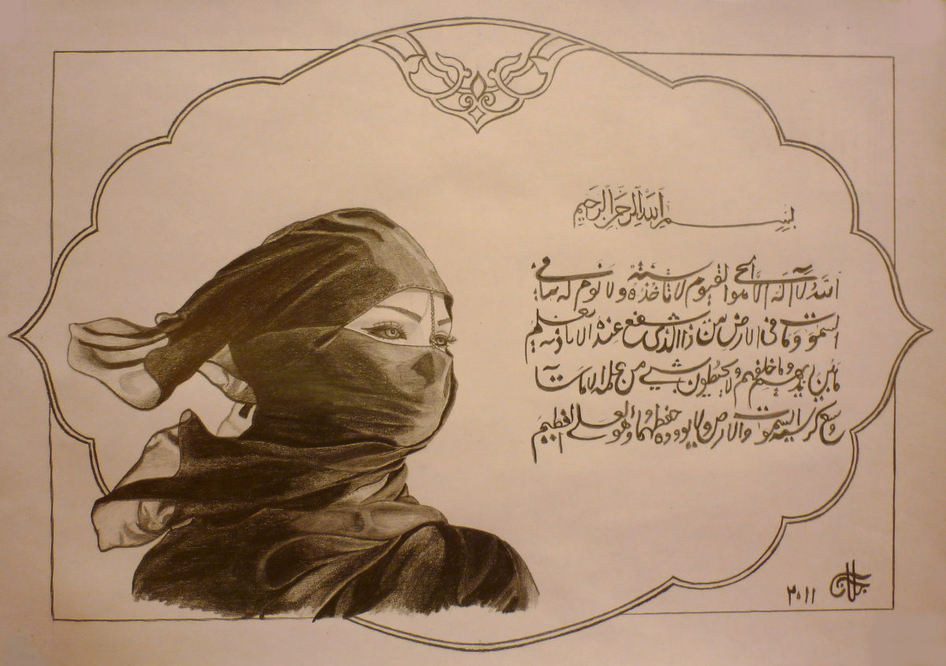 بِسْمِ اللهِ الرَّحْمنِ الرَّحِيمِ
اللهُ لَآ اله الا هو الحي القيوم لا تاخذه سنة ولا نوم له ما في
السموت وما في الارض من ذا الذي يشفع عنده الا باذنه يعلم
ما بين ايديهم وما خلفهم ولا يحيطون بشي من علمه الا بما شآ
وسع كرسيه السموات والارض ولا يووده حفظهما وهو العلي العظيم
٢٠١١